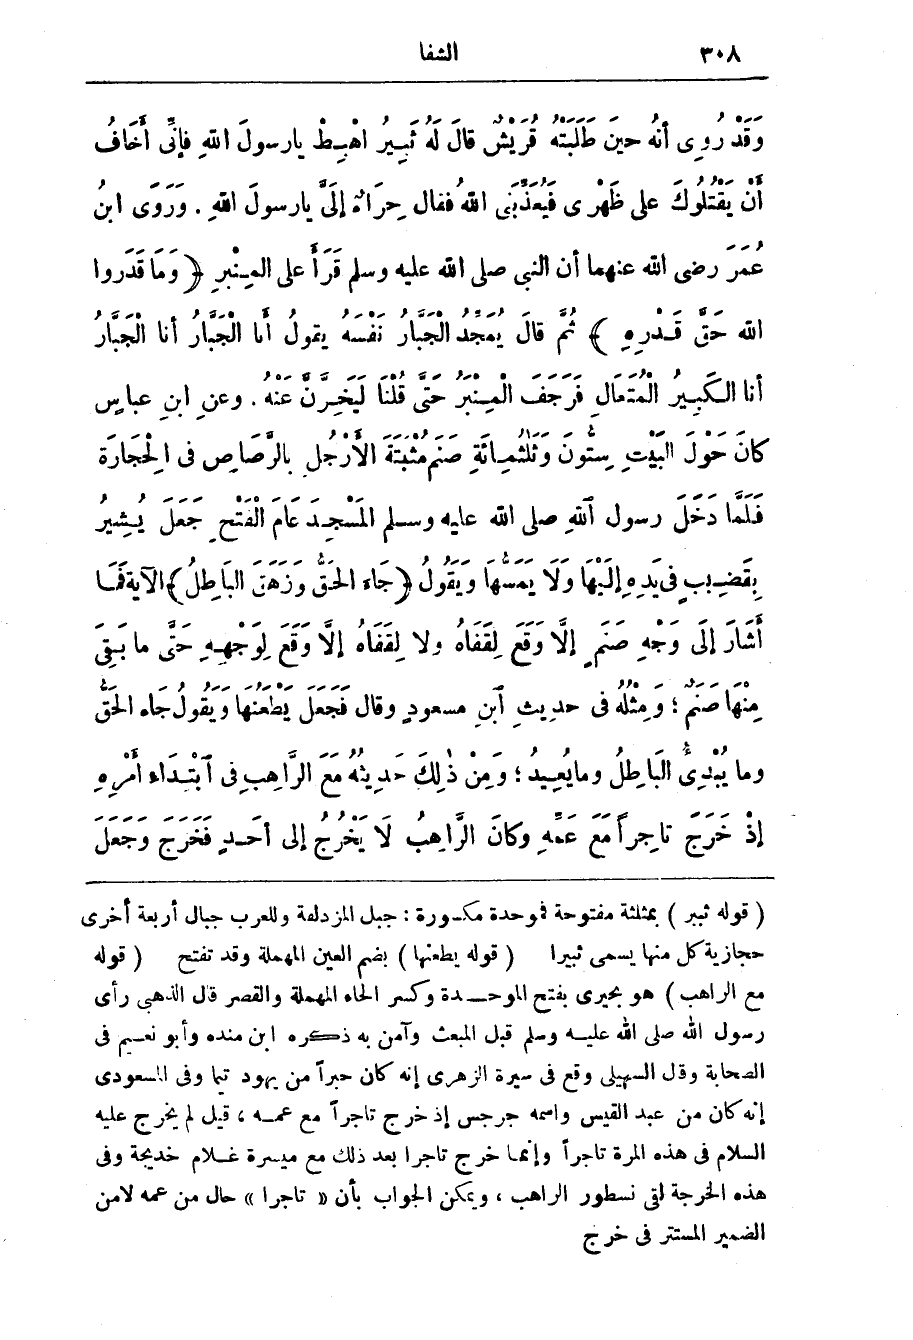 ٣٠٨ الشفا
وَقَدْ رُوِىَ أَنَّهُ حينَ طَلَبَتْهُ قُرَيْشٌ قالَ لَهُ ثَبِيرُ اهْبِطْ يارسولَ اللهِ فإنِّى أَخَافُ
أَنْ يَقْتُلُوكَ على ظَهْرِى فَيُعَذِّبَنِى اللهُ فقال حِرَاءٌ إلَىَّ يارسولَ اللهِ . وَرَوَى ابنُ
عُمَرَ رضى الله عنهما أن النبى صلى الله عليه وسلم قَرَأَ على المِنْبَرِ ﴿ وَمَا قَدَروا
الله حَقَّ قَدْرِهِ ﴾ ثُمَّ قالَ يُمَجِّدُ الْجَبَّارُ نَفْسَهُ يقولُ أنا الْجَبَّارُ أنا الْجَبَّارُ
أنا الكَبِيرُ الْمُتَعَالِ فَرَجَفَ الْمِنْبَرُ حَتَّى قُلْنَا لَيَخِرَّنَّ عَنْهُ . وعنِ ابنِ عباسٍ
كانَ حَوْلَ البَيْتِ سِتُّونَ وَثَلَثُمِائَةِ صَنَمٍ مُثْبَتَةَ الأَرْجُلِ بالرَّصَاصِ فى الْحِجَارَةِ
فَلَمَّا دَخَلَ رسول ٱللهِ صلى الله عليه وسلم المَسْجِدَ عَامَ الْفَتْحِ جَعَلَ يُشِيرُ
بِقَضِيبٍ فى يَدِهِ إِلَيْهَا وَلَا يَمَسُّهَا وَيَقُولُ ﴿ جَاءَ الحَقُّ وَزَهَقَ البَاطِلُ ﴾ الآية فَمَا
أَشَارَ إلَى وَجْهِ صَنَمٍ إلَّا وَقَعَ لِقَفَاهُ ولا لِقَفَاهُ إلَّا وَقَعَ لِوَجْهِهِ حَتَّى ما بَقِىَ
مِنْهَا صَنَمٌ ؛ وَمِثْلُهُ فى حديثِ ٱبنِ مسعودٍ وقال فَجَعَلَ يَطْعَنُهَا وَيَقُولُ جَاء الحَقُّ
وما يُبْدِئُ البَاطِلُ وما يُعِيدُ ؛ وَمِنْ ذٰلِكَ حَدِيثُهُ مَعَ الرَّاهِبِ فى ٱبْتِدَاء أَمْرِهِ
إذْ خَرَجَ تاجِراً مَعَ عَمِّهِ وكانَ الرَّاهِبُ لَا يَخْرُجُ إلى أَحَدٍ فَخَرَجَ وَجَعَلَ
( قوله ثبير ) بمثلثة مفتوحة فموحدة مكسورة : جبل المزدلفة وللعرب جبال أربعة أخرى
حجازية كل منها يسمى ثبيرا ( قوله يطعنها ) بضم العين المهملة وقد تفتح ( قوله
مع الراهب ) هو بحيرى بفتح الموحدة وكسر الحاء المهملة والقصر قال الذهبى رأى
رسول الله صلى الله عليه وسلم قبل المبعث وآمن به ذكره ابن منده وأبو نعيم فى
الصحابة وقل السهيلى وقع فى سيرة الزهرى إنه كان حبراً من يهود تيما وفى المسعودى
إنه كان من عبد القيس واسمه جرجس إذ خرج تاجراً مع عمه ، قيل لم يخرج عليه
السلام فى هذه المرة تاجراً وإنما خرج تاجرا بعد ذلك مع ميسرة غلام خديجة وفى
هذه الخرجة لقى نسطور الراهب ، ويمكن الجواب بأن « تاجرا » حال من عمه لامن
الضمير المستتر فى خرج